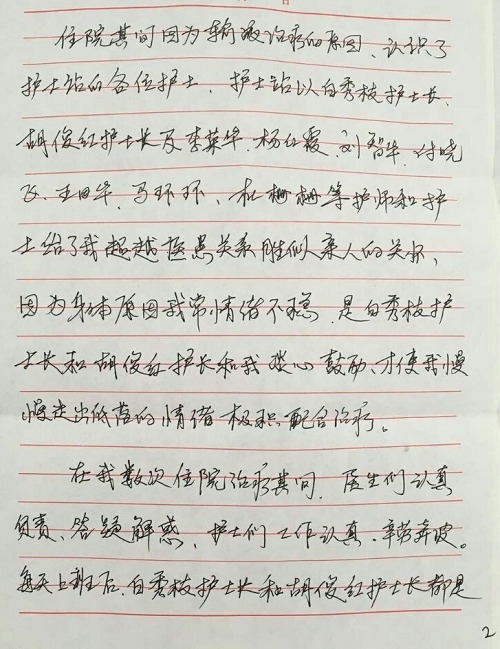 住院其间因为输液治疗的原因、认识了
护士站的各位护士、护士站以白秀枝护士长、
胡俊红护士长及李荣华、杨红霞、刘智华、付晓
飞、王田华、马环环、杜栅栅等护师和护
士给了我超越医患关系胜似亲人的关怀、
因为身体原因我常情绪不稳、是白秀枝护
士长和胡俊红护长和我谈心鼓励、才使我慢
慢走出低落的情绪积极配合治疗。
在我数次住院治疗其间、医生们认真
负责、答疑解惑、护士们工作认真、辛劳奔波。
每天上班后、白秀枝护士长和胡俊红护士长都是
2